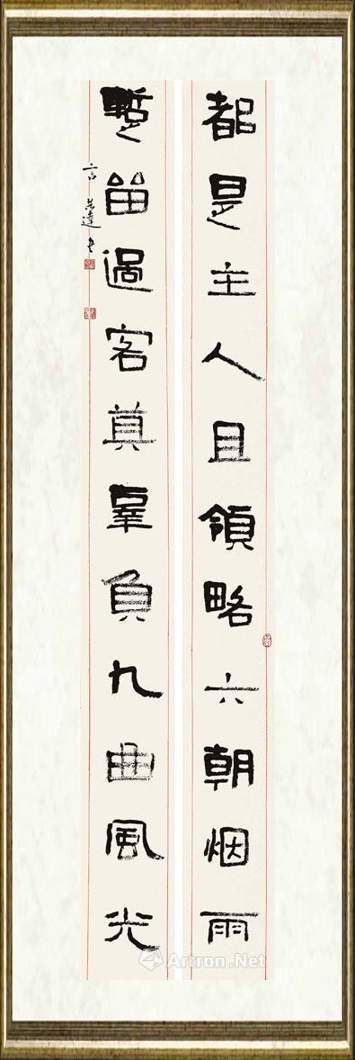 都是主人且領略六朝烟雨
暫畱過客莫辜負九曲風光
言恭達書
Artron.Net